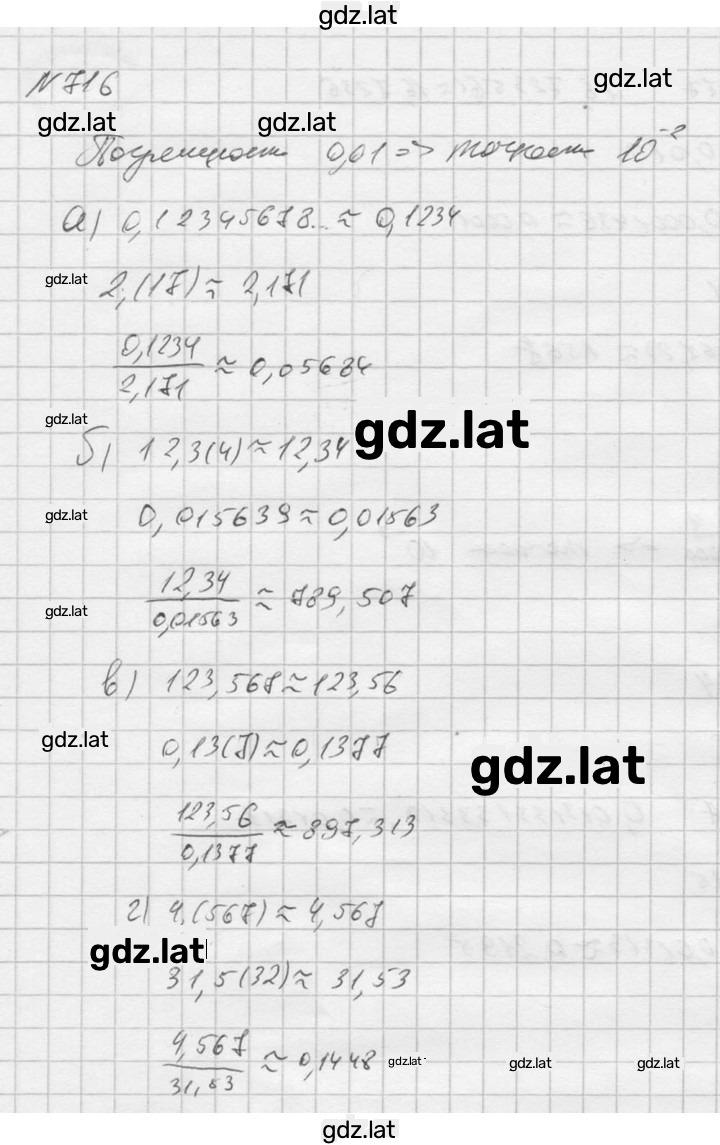 gdz.lat
N 716
gdz.lat
gdz.lat gdz.lat
Погрешность 0,01 => точность 10^-2
а) 0,12345678... ≈ 0,1234
gdz.lat
2,(17) ≈ 2,171
0,1234/2,171 ≈ 0,05684
gdz.lat
gdz.lat
б) 12,3(4) ≈ 12,34
gdz.lat
0,015639 ≈ 0,01563
12,34/0,01563 ≈ 789,507
gdz.lat
в) 123,567 ≈ 123,56
gdz.lat
0,13(7) ≈ 0,1377
gdz.lat
123,56/0,1377 ≈ 897,313
г) 4,(567) ≈ 4,567
gdz.lat
31,5(32) ≈ 31,53
4,567/31,53 ≈ 0,1448
gdz.lat gdz.lat gdz.lat
gdz.lat